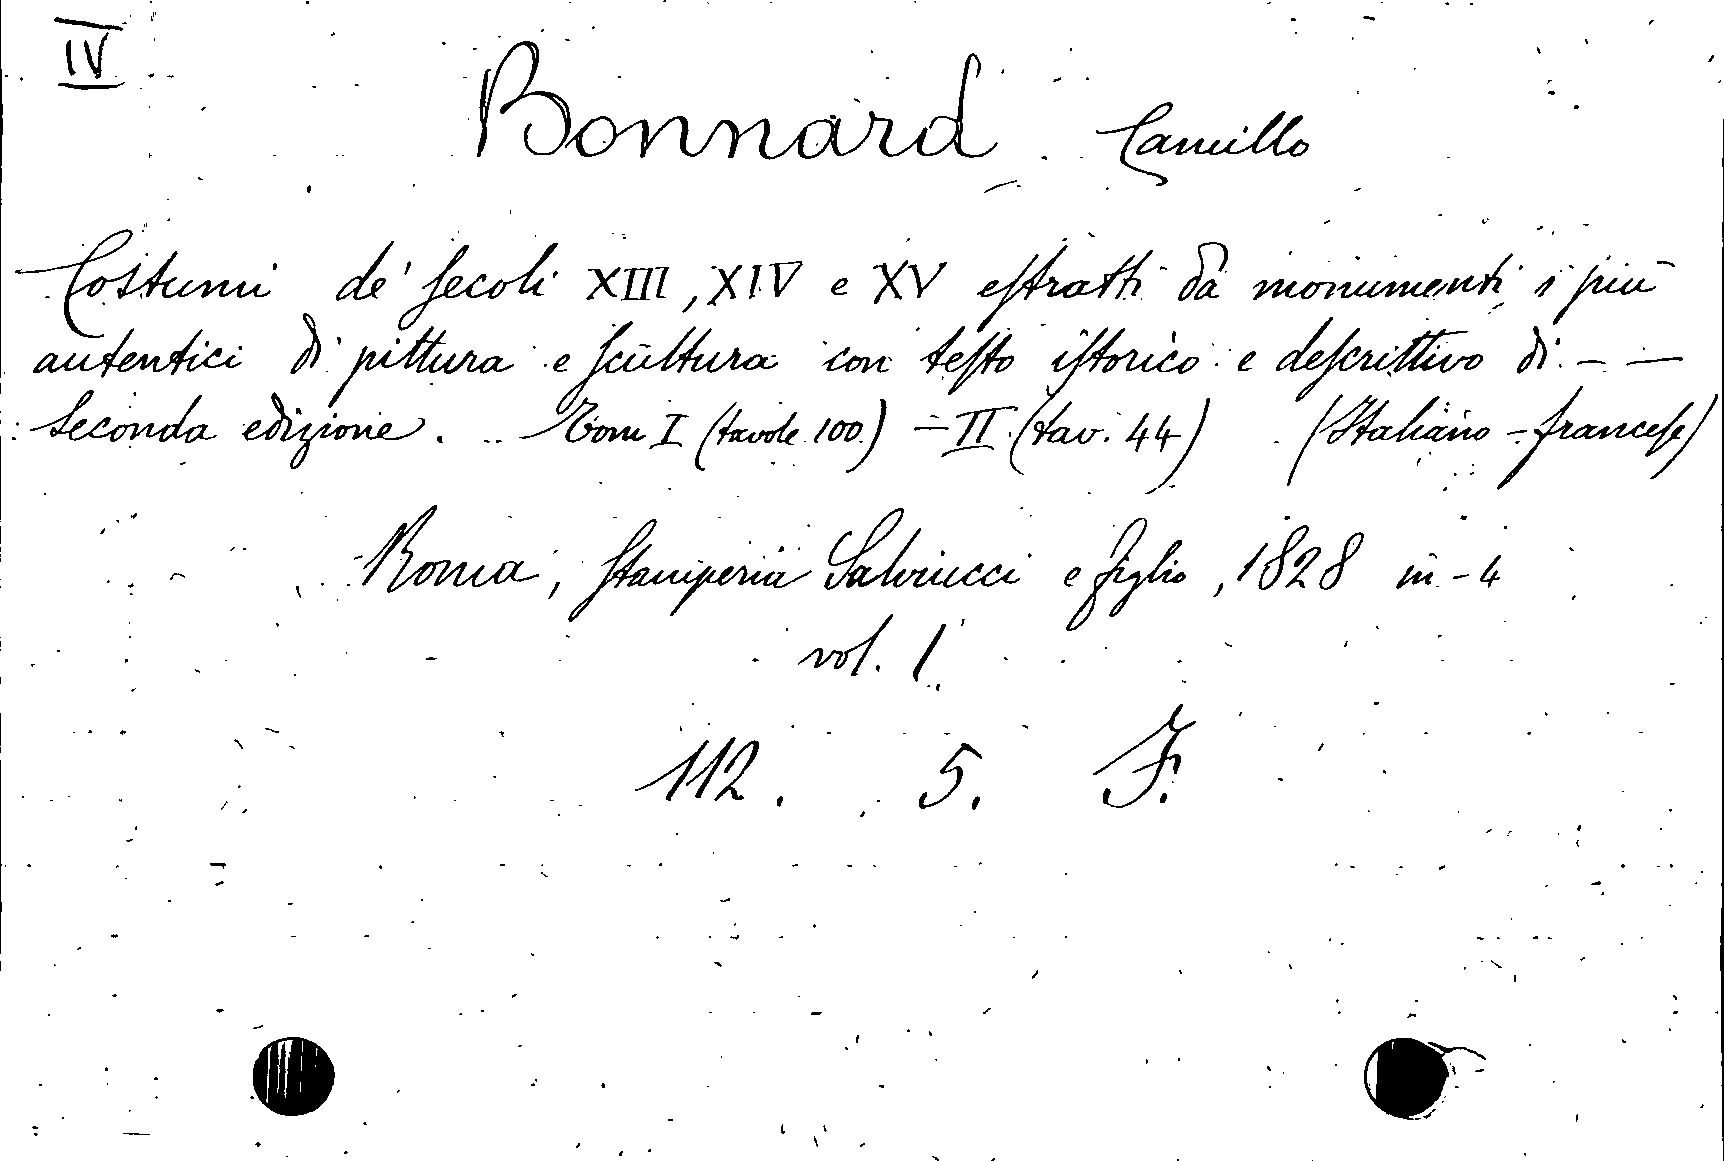 IV
Bonnard Camillo
Costumi de' secoli XIII, XIV e XV estratti da monumenti i più
autentici di pittura e scultura con testo istorico e descrittivo di - -
Seconda edizione. Tom I (tavole 100.) - II (tav. 44) (Italiano - francese)
Roma, Stamperia Salviucci e figlio, 1828 in-4
vol. 1
112. 5. F.